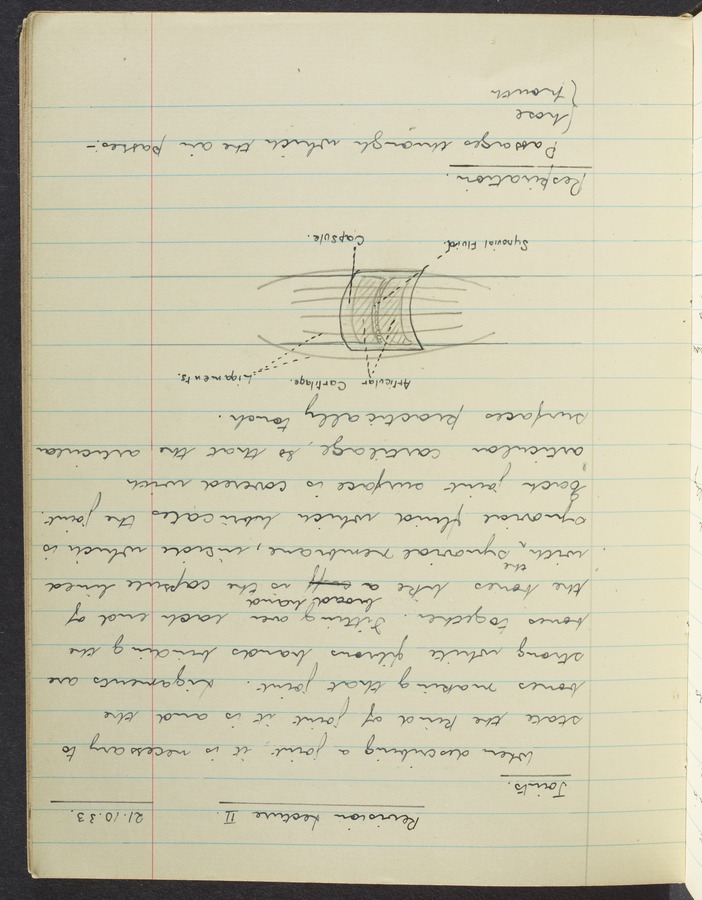 Revision Lecture II. 21.10.33.
Joints.
When describing a joint, it is necessary to
state the kind of joint it is and the
bones making that joint. Ligaments are
strong white fibrous bands binding the
bones together. Fitting over each end of
the bones like a broad band is the capsule lined
with, the synovial membrane, inside which is
synovial fluid which lubricates the joint.
Each joint surface is covered with
articular cartilage, so that the articular
surfaces practically touch.
Articular Cartilage. Ligaments.
Synovial Fluid. Capsule.
Respiration.
Passages through which the air passes:-
{nose
{mouth